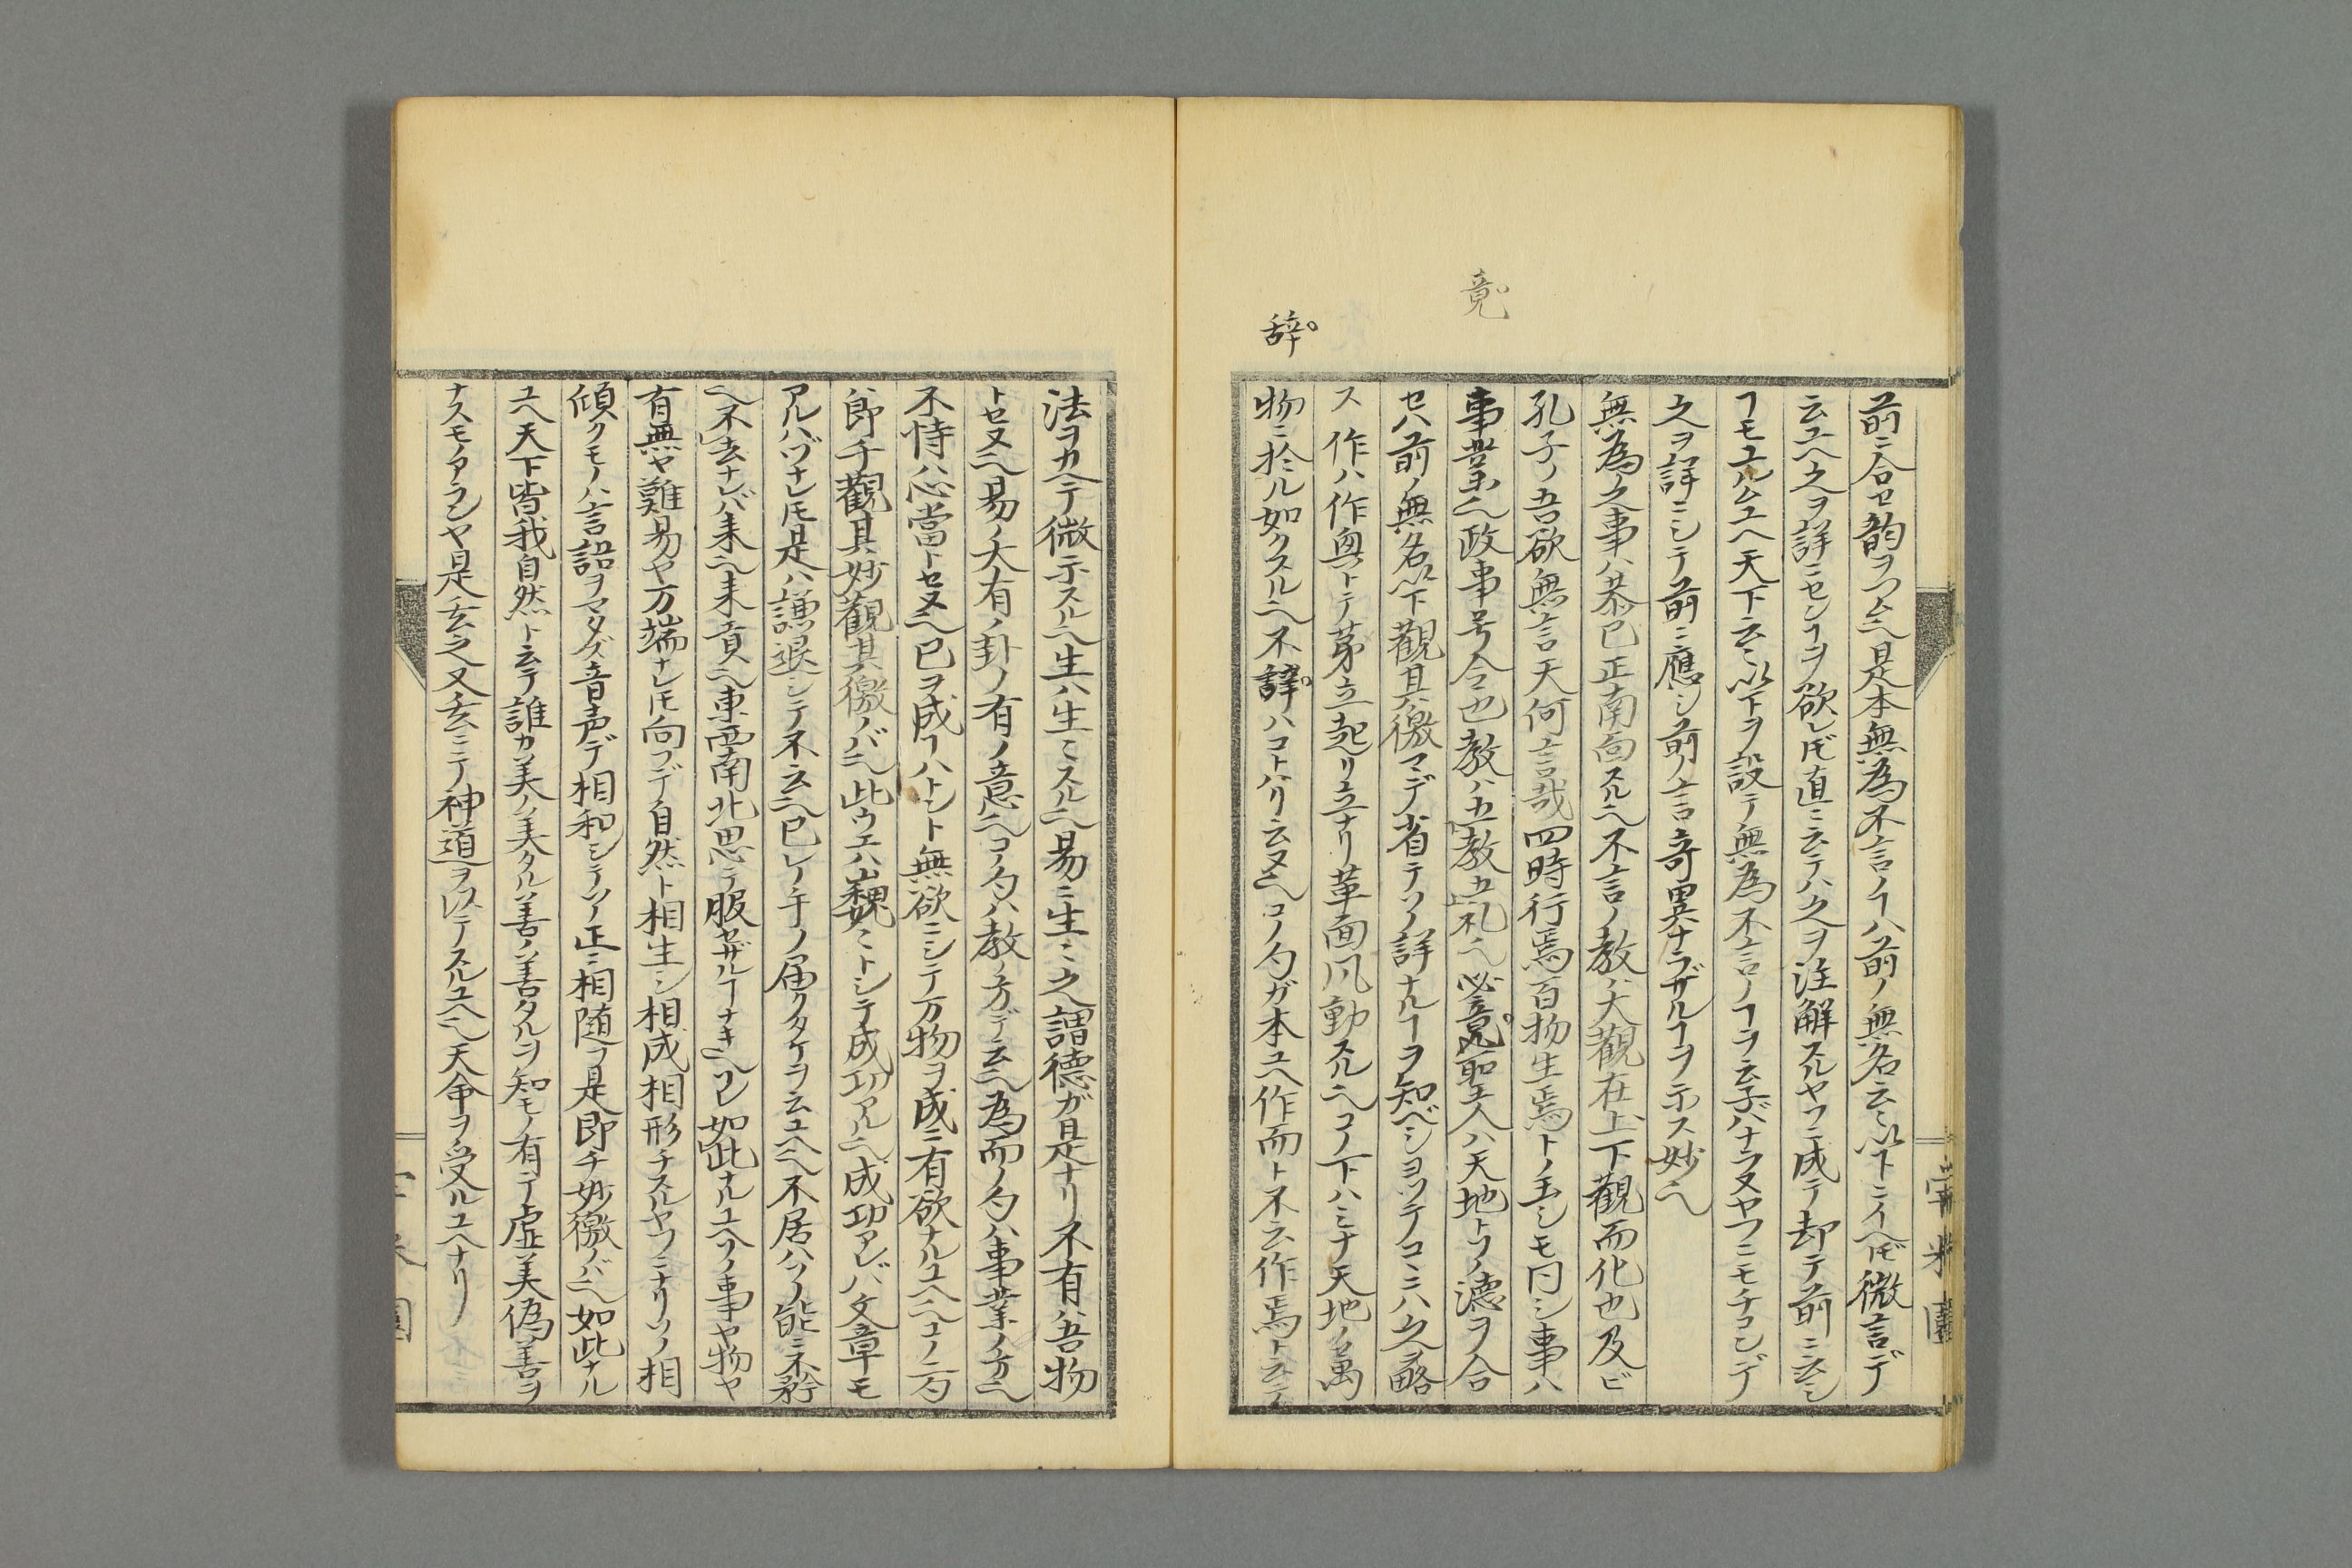 竟
辞
前ニ合セ韵ヲフム〆是本無為不言ノヿハ前ノ無名云〻以下ニイヘ𪜈微言デ
云ユヘ之ヲ詳ニセンヿヲ欲レ𪜈直ニ云テハ之ヲ注解スルヤフニ成テ却テ前ニ云シ
ヿモユルムユヘ天下云〻以下ヲ設テ無為不言ノヿヲ云子バナラヌヤフニモチコンデ
之ヲ詳ニシテ前ニ應シ前ノ言奇異ナラザルヿヲ示ス妙〆
無為之事ハ恭已正南面スル〆不言ノ教ハ大觀在上下觀而化也及ビ
孔子ノ吾欲無言天何言哉四時行焉百物生焉トノ玉シモ同シ事ハ
事業〆政事号令也教ハ五教五礼〆必竟聖人ハ天地トソノ德ヲ合
セハ前ノ無名以下觀其徼マデ省テソノ詳ナルヿヲ知ベシヨツテコヽニハ之ヲ略
ス 作ハ作奥トテ茅立起リ立ナリ革面風動スル〆コノ下ハミナ天地ノ萬
物ニ於ル如クスル〆不辞ハコトハリ云ヌ〆コノ句ガ本ユヘ作而ト不云作焉ト云テ
法ヲカヘテ微示スル〆生ハ生〻スル〆易ニ生〻之謂德ガ是ナリ不有ハ吾物
トセヌ〆易ノ大有ノ卦ノ有ノ意〆コノ句ハ教ノ方デ云〆為而ノ句ハ事業ノ方〆
不恃ハ心當トセヌ〆已ヲ成ヿハトント無欲ニシテ万物ヲ成ニ有欲ナルユヘ〆コノ二句
ガ即チ觀其妙觀其徼ノバ〆此ウエハ巍〻トシテ成功アル〆成功アレバ文章モ
アルハヅナレ𪜈是ハ謙退シテ不云〆已レノ手ノ届クタケヲ云ユヘ〆不居ハソノ能ニ不矜
〆不去ナレバ来〆来貢〆東西南北思テ服セザルヿナキ〆ソレ如此ナルユヘソノ事ヤ物ヤ
有無ヤ難易ヤ万端ナレ𪜈向フデ自然ト相生シ相成相形チスルヤフニナリソノ相
傾クモノハ言語ヲマタズ音声デ相和シテソノ正ニ相随フ是即チ妙徼ノバ〆如此ナル
ユヘ天下皆我自然ト云テ誰カ美ノ美タル善ノ善タルヲ知モノ有ンヤ虚美偽善ヲ
ナスモノアランヤ是玄之又玄ニテ神道ヲ以テスルユヘ〆天命ヲ受ルユヘナリ